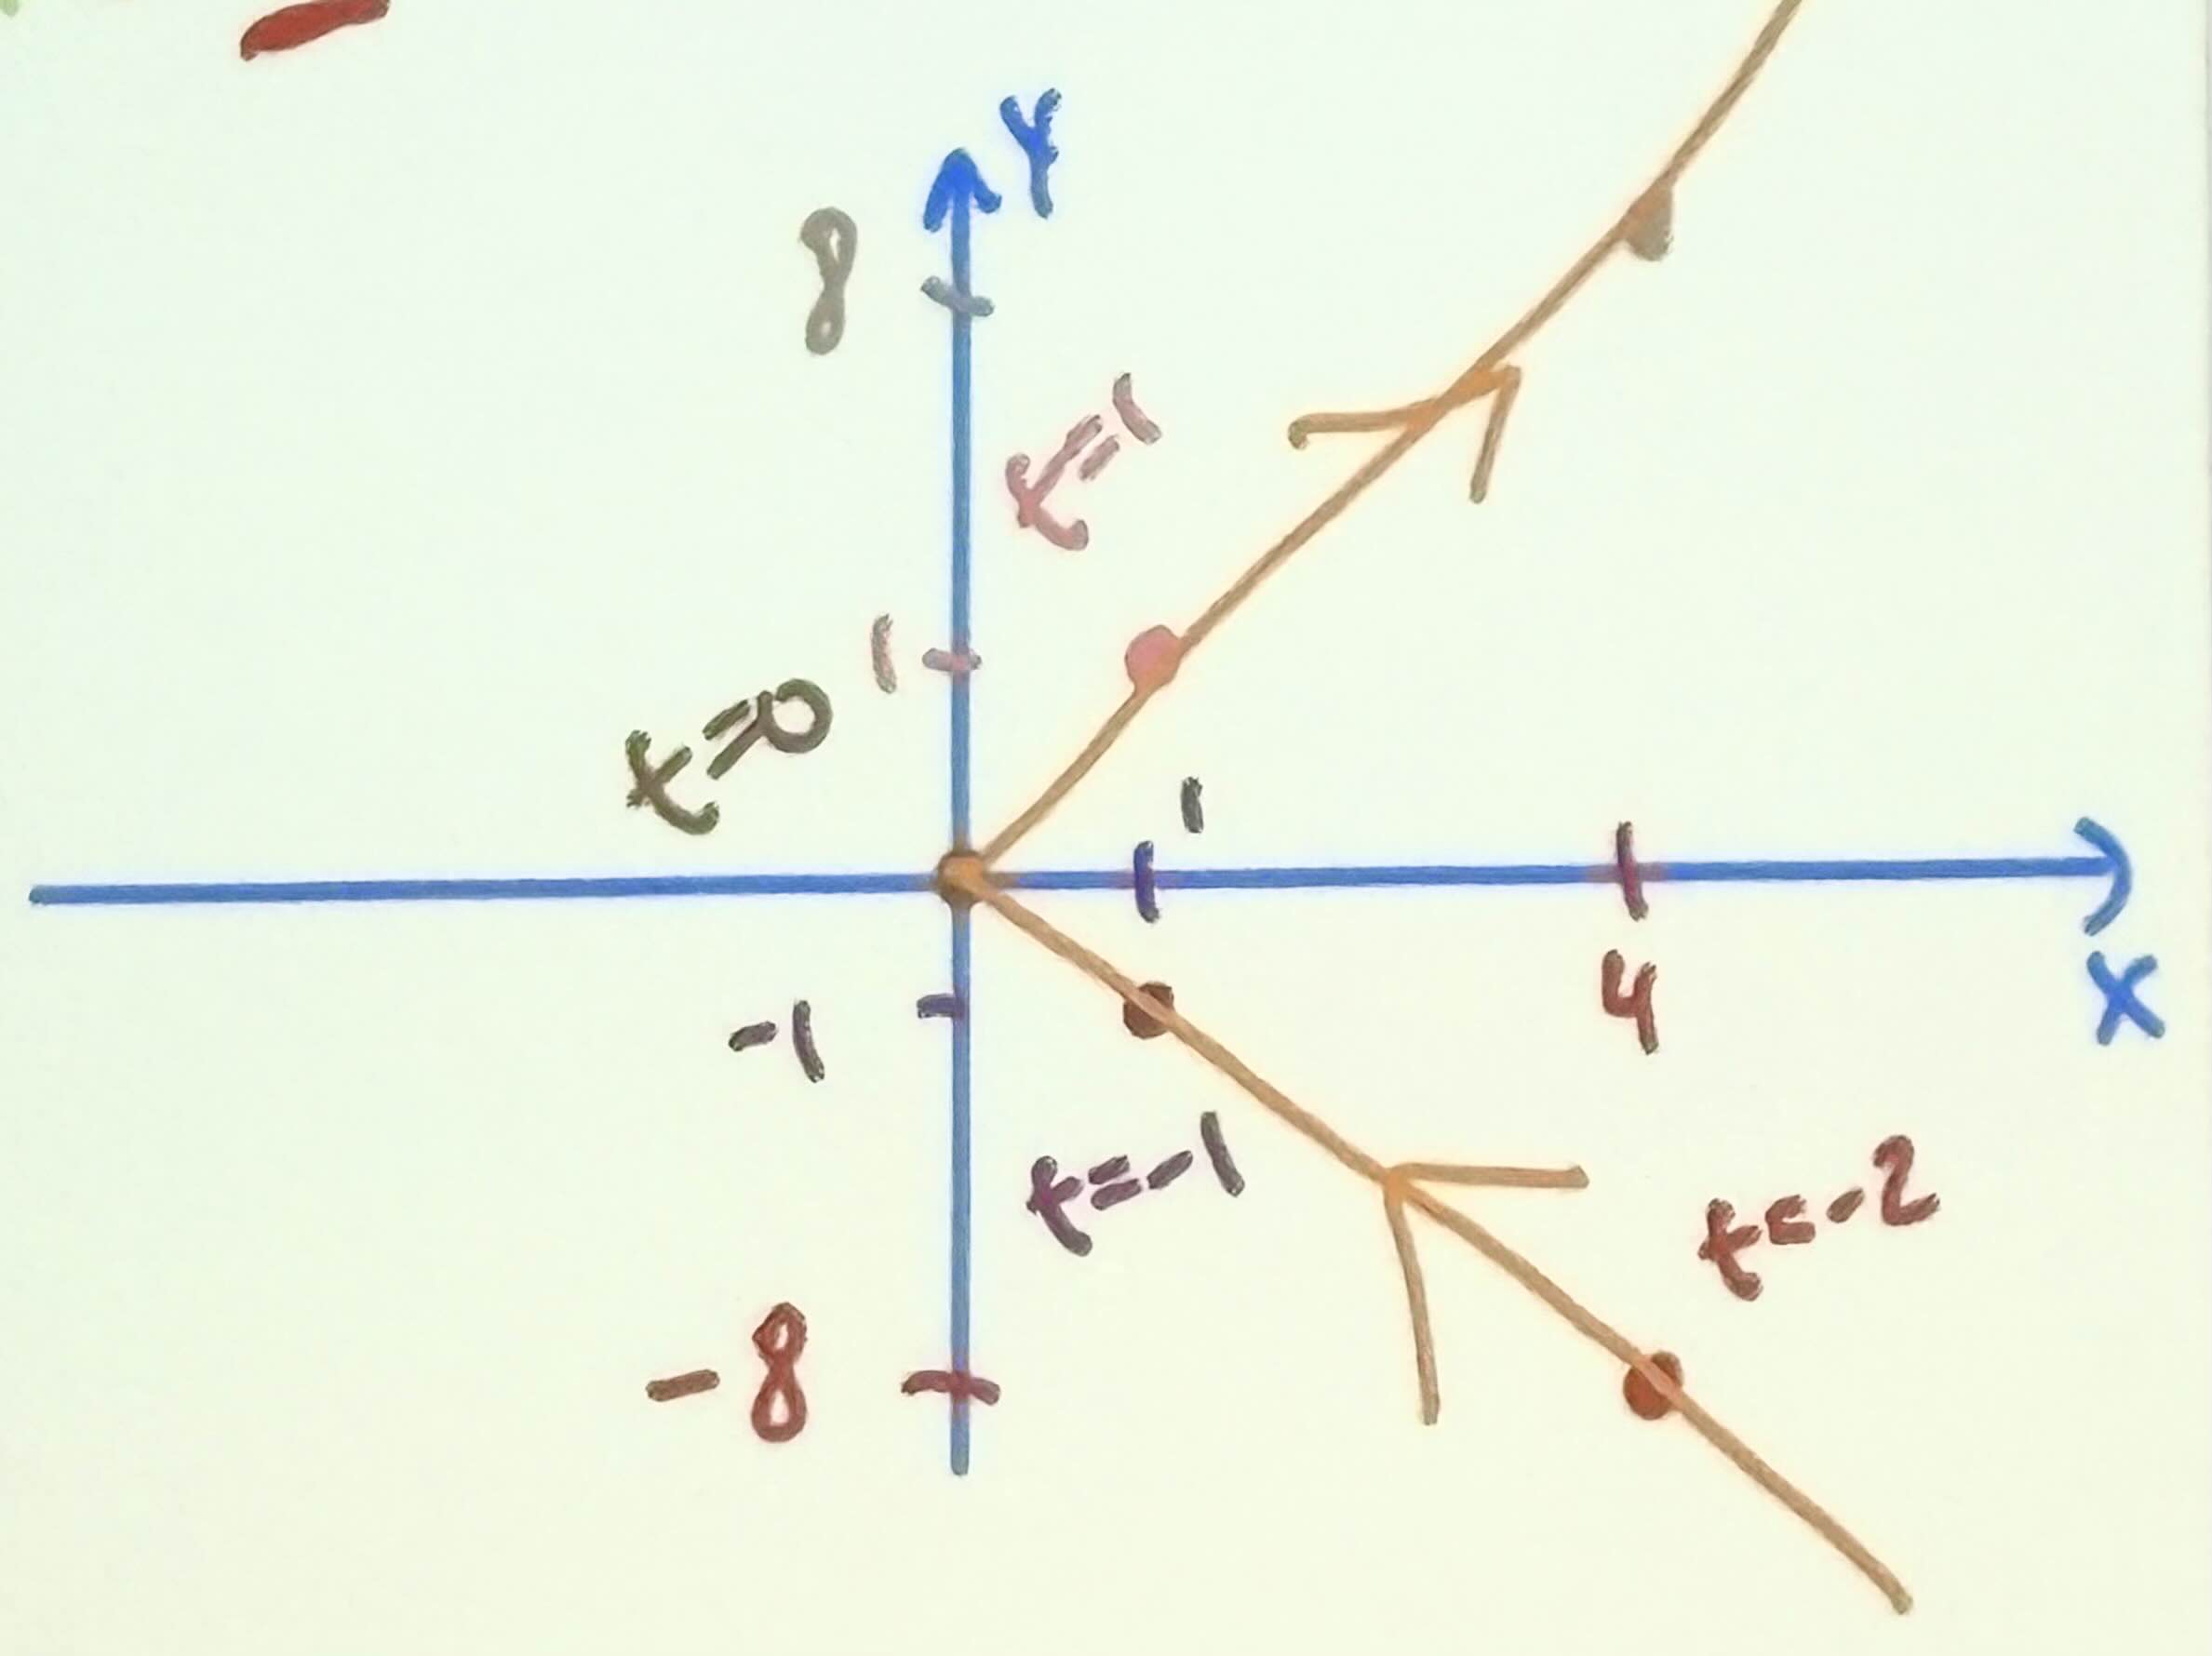 Y
8
t=1
1
t=0
1
X
4
-1
t=-1
t=-2
-8